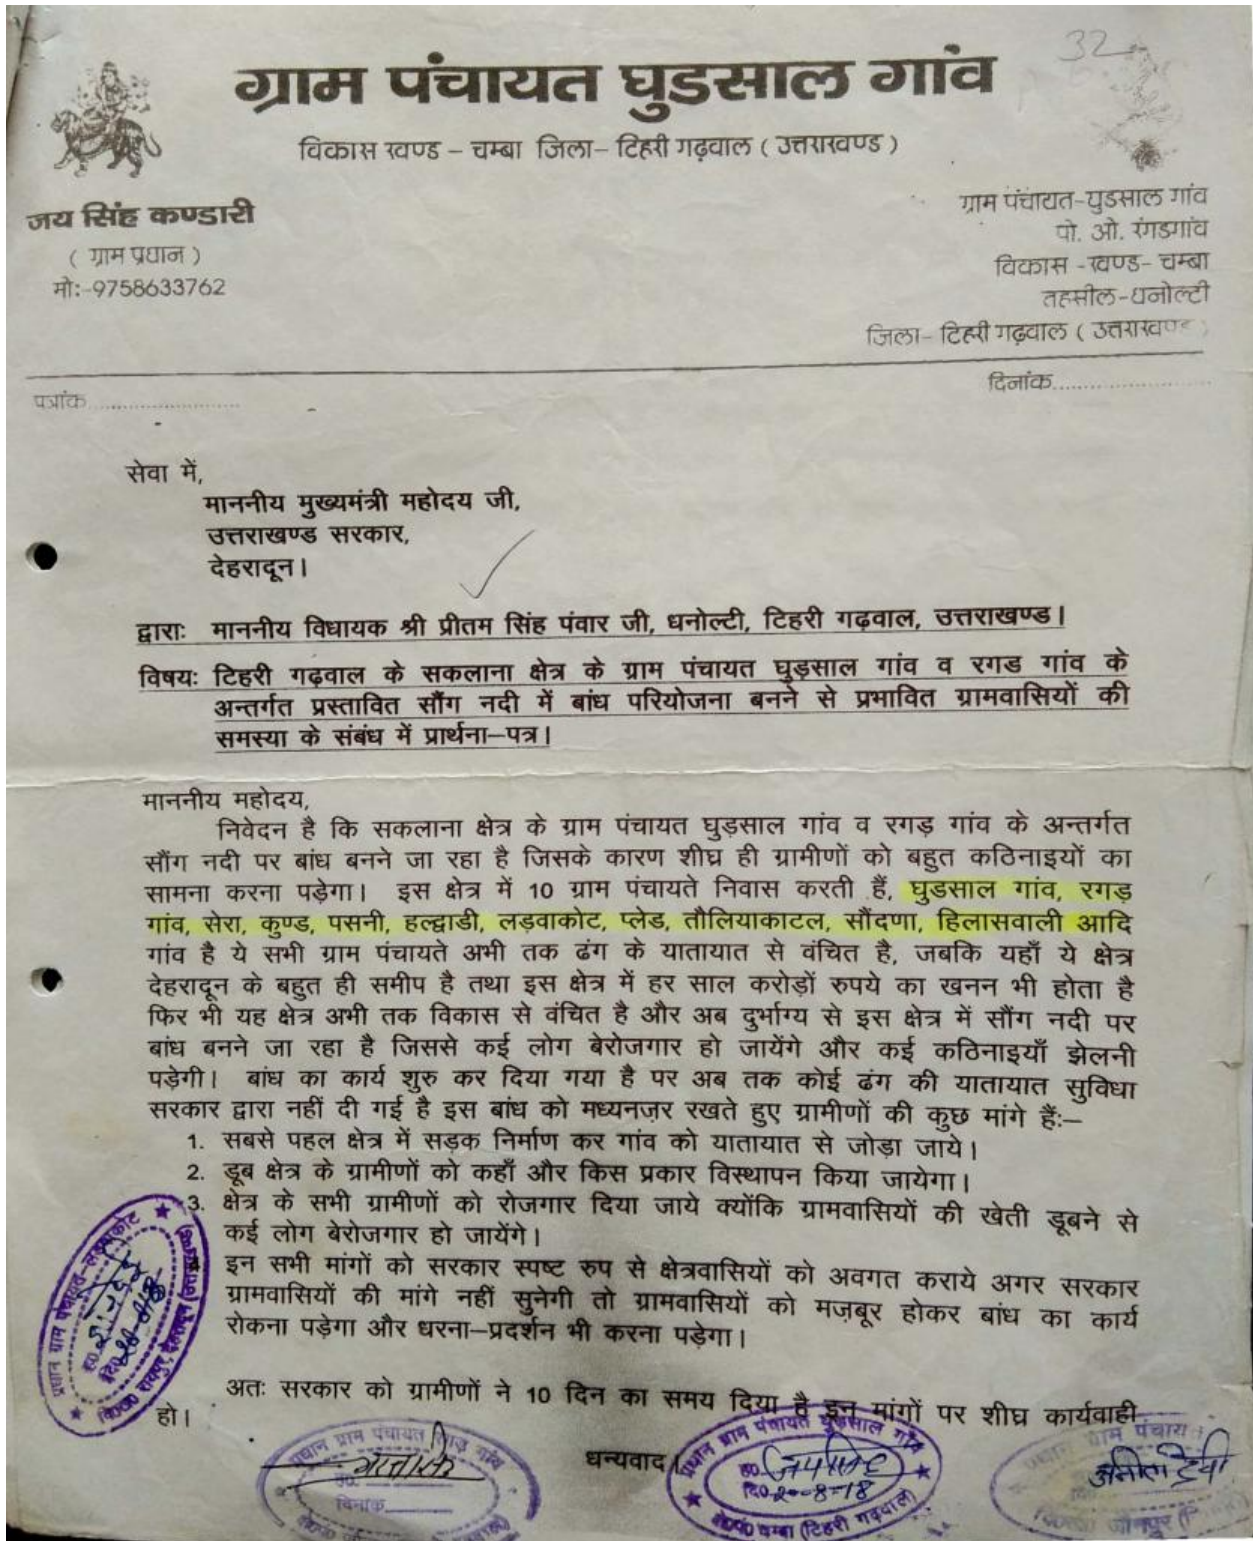 32
ग्राम पंचायत घुडसाल गांव
विकास खण्ड – चम्बा जिला– टिहरी गढ़वाल ( उत्तराखण्ड )
जय सिंह कण्डारी
( ग्राम प्रधान )
मोः-9758633762
ग्राम पंचायत-घुडसाल गांव
पो. ओ. रंगडगांव
विकास -खण्ड- चम्बा
तहसील-धनोल्टी
जिला- टिहरी गढ़वाल ( उत्तराखण्ड )
पत्रांक........................
दिनांक........................
सेवा में,
माननीय मुख्यमंत्री महोदय जी,
उत्तराखण्ड सरकार,
देहरादून।
द्वाराः माननीय विधायक श्री प्रीतम सिंह पंवार जी, धनोल्टी, टिहरी गढ़वाल, उत्तराखण्ड।
विषयः टिहरी गढ़वाल के सकलाना क्षेत्र के ग्राम पंचायत घुड़साल गांव व रगड गांव के
अन्तर्गत प्रस्तावित सौंग नदी में बांध परियोजना बनने से प्रभावित ग्रामवासियों की
समस्या के संबंध में प्रार्थना–पत्र।
माननीय महोदय,
निवेदन है कि सकलाना क्षेत्र के ग्राम पंचायत घुड़साल गांव व रगड़ गांव के अन्तर्गत
सौंग नदी पर बांध बनने जा रहा है जिसके कारण शीघ्र ही ग्रामीणों को बहुत कठिनाइयों का
सामना करना पड़ेगा। इस क्षेत्र में 10 ग्राम पंचायते निवास करती हैं, घुडसाल गांव, रगड़
गांव, सेरा, कुण्ड, पसनी, हल्द्वाडी, लड़वाकोट, प्लेड, तौलियाकाटल, सौंदणा, हिलासवाली आदि
गांव है ये सभी ग्राम पंचायते अभी तक ढंग के यातायात से वंचित है, जबकि यहाँ ये क्षेत्र
देहरादून के बहुत ही समीप है तथा इस क्षेत्र में हर साल करोड़ों रुपये का खनन भी होता है
फिर भी यह क्षेत्र अभी तक विकास से वंचित है और अब दुर्भाग्य से इस क्षेत्र में सौंग नदी पर
बांध बनने जा रहा है जिससे कई लोग बेरोजगार हो जायेंगे और कई कठिनाइयाँ झेलनी
पड़ेगी। बांध का कार्य शुरु कर दिया गया है पर अब तक कोई ढंग की यातायात सुविधा
सरकार द्वारा नहीं दी गई है इस बांध को मध्यनज़र रखते हुए ग्रामीणों की कुछ मांगे हैं:–
1. सबसे पहल क्षेत्र में सड़क निर्माण कर गांव को यातायात से जोड़ा जाये।
2. डूब क्षेत्र के ग्रामीणों को कहाँ और किस प्रकार विस्थापन किया जायेगा।
3. क्षेत्र के सभी ग्रामीणों को रोजगार दिया जाये क्योंकि ग्रामवासियों की खेती डूबने से
कई लोग बेरोजगार हो जायेंगे।
इन सभी मांगों को सरकार स्पष्ट रुप से क्षेत्रवासियों को अवगत कराये अगर सरकार
ग्रामवासियों की मांगे नहीं सुनेगी तो ग्रामवासियों को मज़बूर होकर बांध का कार्य
रोकना पड़ेगा और धरना–प्रदर्शन भी करना पड़ेगा।
अतः सरकार को ग्रामीणों ने 10 दिन का समय दिया है इन मांगों पर शीघ्र कार्यवाही
हो।
धन्यवाद।
प्रधान ग्राम पंचायत-लडवाकोट
वि०ख० रायपुर, देहरादून
प्रधान ग्राम पंचायत रगड़ गांव
दिनांक
प्रधान ग्राम पंचायत घुडसाल गांव
ह०
दि० 20-8-18
वि०ख० चम्बा (टिहरी गढ़वाल)
प्रधान ग्राम पंचायत
अनीता देवी
जौनपुर